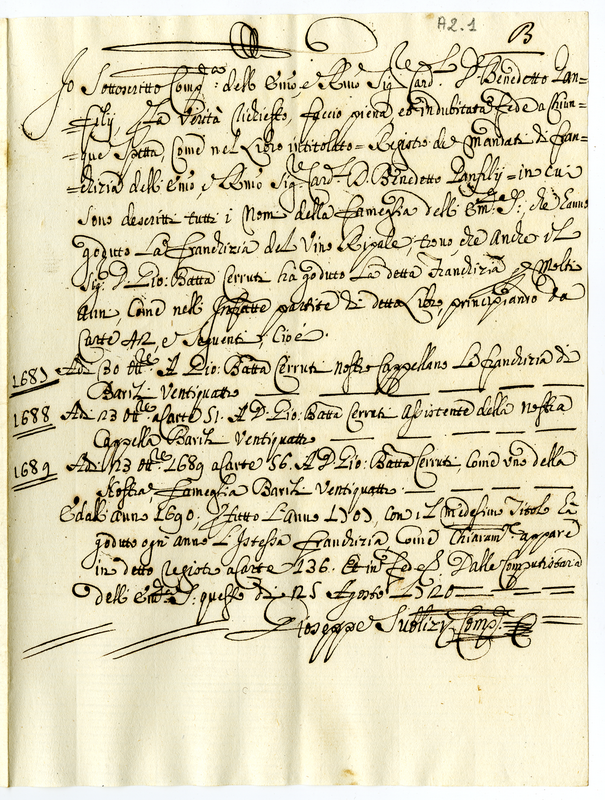 A2.1
B
Io Sottoscritto Comp.ta dell Emo, e Rmo Sig.re Card.l D. Benedetto Pan=
=filij, La Verità Richiesto, faccio piena, ed indubitata fede a Chiun=
=que Spetta, Come nel Libro intitolato = Registro de Mandati di fran=
=chizia dell Emo, e Rmo Sig.re Card.l D. Benedetto Panfilij = in Cui
Sono descritti tutti i Nomi della Fameglia dell Em.za S., che hanno
goduto La Franchizia del Vino Ripale, trovo, che Anche il
Sig. D. Gio: Batta Cerruti ha goduto La detta Franchizia p Molti
Anni, Come nell partite di detto Libro, principiando da
Carte 42, e Seguenti, Cioè
1681 Ad 30 ott.re A Gio: Batta Cerruti nostro Cappellano La franchizia di
Barili Ventiquattro
1688 Ad 23 ott.re a Carte 51. A D. Gio: Batta Cerruti Assistente della Nostra
Cappella Barili Ventiquattro
1689 Adi 23 ott.re 1689 a Carte 56. A D. Gio: Batta Cerruti, Come uno della
Nostra Fameglia Barili Ventiquattro
E dall anno 1690. p tutto L anno 1701, con il Medesimo Titolo hà
goduto ogni anno L istessa Franchizia Come Chiaram.te appare
in detto Registro a Carte 136. Et in fede Dalla Computisteria
dell Em.za S. questo di 25 Agosto 1720
Gioseppe Sublizi Comp.ta